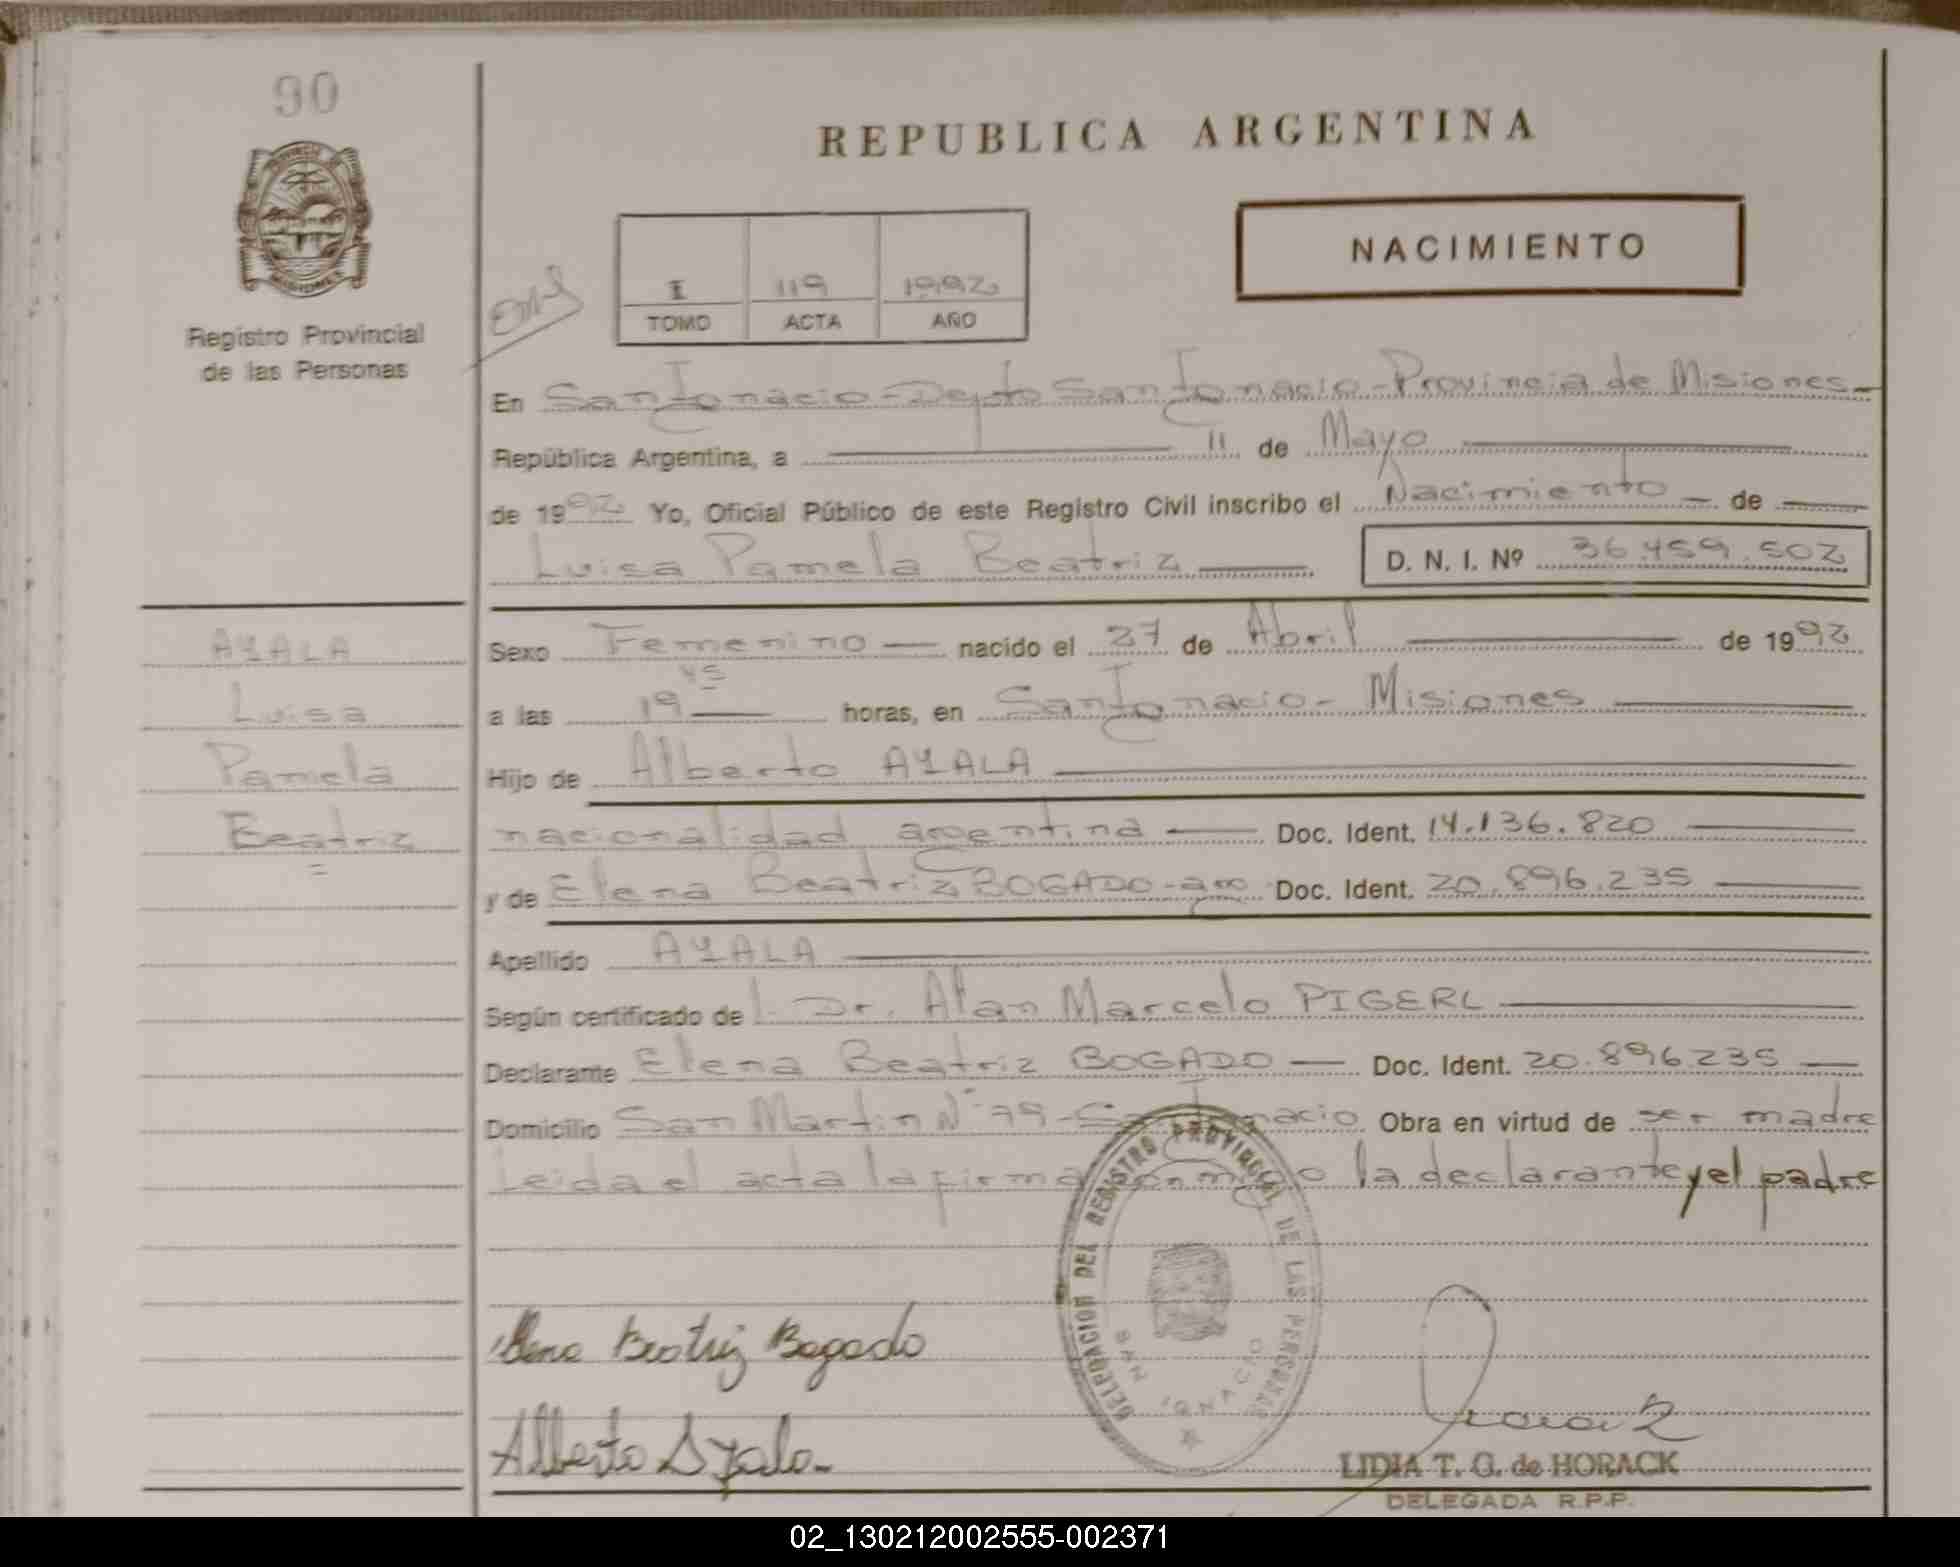 90
REPUBLICA ARGENTINA
NACIMIENTO
I 119 1992
TOMO ACTA AÑO
Registro Provincial
de las Personas
En San Ignacio - Depto San Ignacio - Provincia de Misiones -
República Argentina, a 11 de Mayo
de 1992 Yo, Oficial Público de este Registro Civil inscribo el Nacimiento de
Luisa Pamela Beatriz D. N. I. Nº 36.459.502
AYALA
Luisa
Pamela
Beatriz
Sexo Femenino nacido el 27 de Abril de 1992
a las 19 45 horas, en San Ignacio - Misiones
Hijo de Alberto AYALA
nacionalidad argentina Doc. Ident. 14.136.820
y de Elena Beatriz BOGADO - arg Doc. Ident. 20.896.235
Apellido AYALA
Según certificado de l Dr. Alan Marcelo PIGERL
Declarante Elena Beatriz BOGADO Doc. Ident. 20.896.235
Domicilio San Martin Nº 79 - San Ignacio Obra en virtud de ser madre
Leida el acta la firma conmigo la declarante y el padre
DELEGACION DEL REGISTRO PROVINCIAL DE LAS PERSONAS
SAN IGNACIO
Elena Beatriz Bogado
Alberto Ayala
LIDIA T. G. de HORACK
DELEGADA R.P.P.
02_130212002555-002371